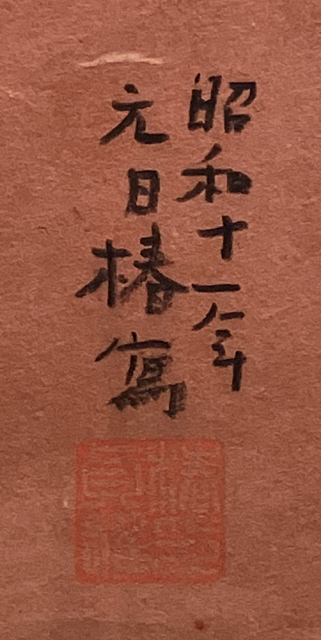 昭和十一年
元日椿寫